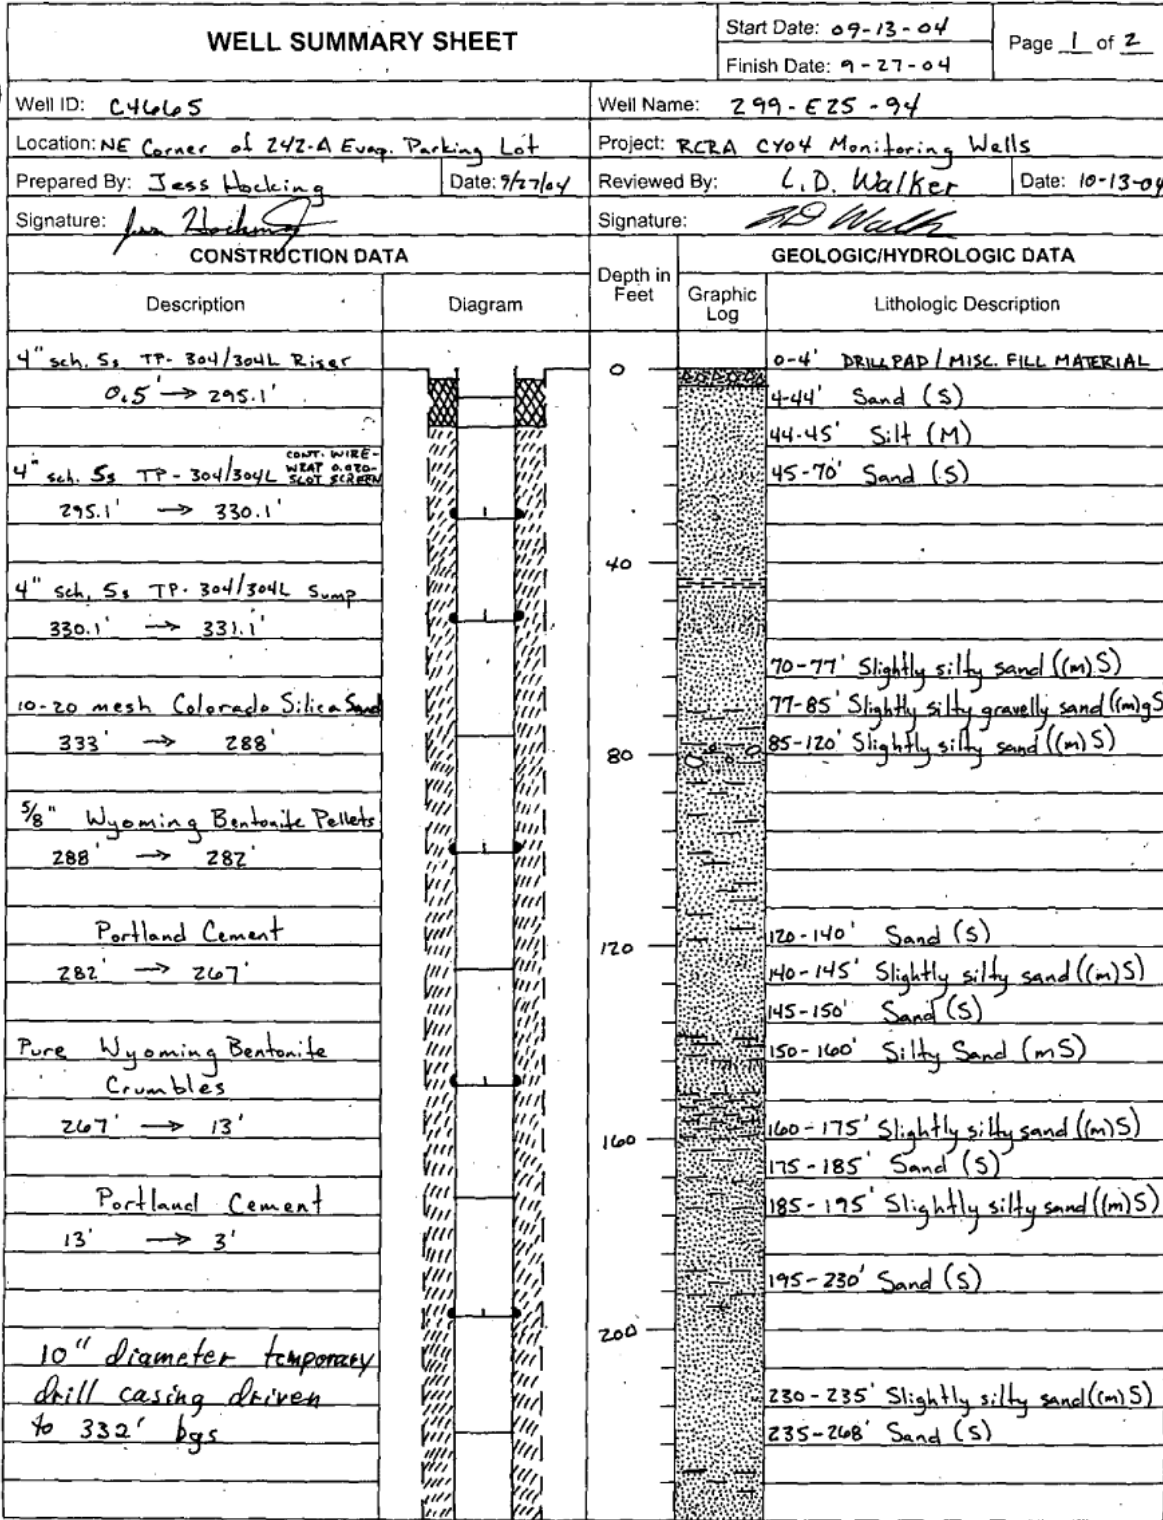 WELL SUMMARY SHEET
Start Date: 09-13-04
Finish Date: 9-27-04
Page 1 of 2
Well ID: C4665
Well Name: 299-E25-94
Location: NE Corner of 242-A Evap. Parking Lot
Project: RCRA CY04 Monitoring Wells
Prepared By: Jess Hocking
Date: 9/27/04
Reviewed By: L.D. Walker
Date: 10-13-04
Signature: Jess Hocking
Signature: LD Walker
CONSTRUCTION DATA
Description
Diagram
Depth in
Feet
GEOLOGIC/HYDROLOGIC DATA
Graphic
Log
Lithologic Description
4" sch. 5s TP-304/304L Riser
0.5' → 295.1'
4" sch. 5s TP-304/304L CONT. WIRE-
WRAP 0.020-
SLOT SCREEN
295.1' → 330.1'
4" sch. 5s TP-304/304L Sump
330.1' → 331.1'
10-20 mesh Colorado Silica Sand
333' → 288'
5/8" Wyoming Bentonite Pellets
288' → 282'
Portland Cement
282' → 267'
Pure Wyoming Bentonite
Crumbles
267' → 13'
Portland Cement
13' → 3'
10" diameter temporary
drill casing driven
to 332' bgs
0
40
80
120
160
200
0-4' DRILLPAD / MISC. FILL MATERIAL
4-44' Sand (S)
44-45' Silt (M)
45-70' Sand (S)
70-77' Slightly silty sand ((m)S)
77-85' Slightly silty gravelly sand ((m)gS
85-120' Slightly silty sand ((m)S)
120-140' Sand (S)
140-145' Slightly silty sand ((m)S)
145-150' Sand (S)
150-160' Silty Sand (mS)
160-175' Slightly silty sand ((m)S)
175-185' Sand (S)
185-195' Slightly silty sand ((m)S)
195-230' Sand (S)
230-235' Slightly silty sand ((m)S)
235-268' Sand (S)